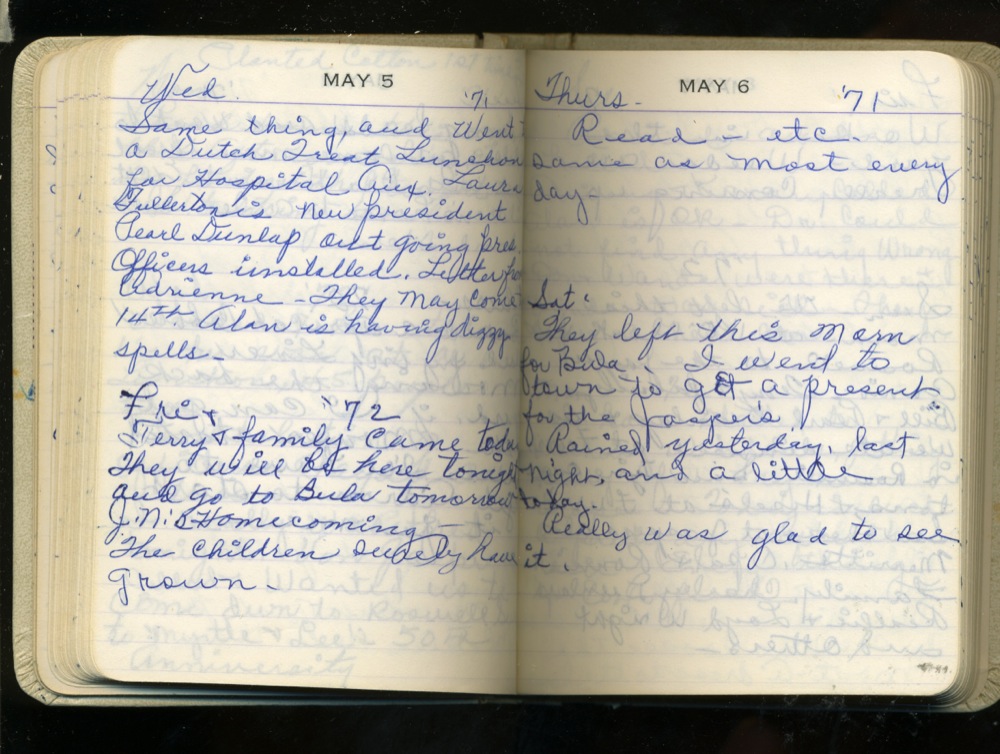 MAY 5
Wed. '71
Same thing, and Went
a Dutch Treat Lunchon
for Hospital Aux. Laura
Fullerton is new president
Pearl Dunlap out going pres.
Officers installed. Letter
Adrienne - They may come
14th. Alan is having dizzy
spells -
Fri. '72
Terry & family came
They will be here tonight
and go to Bula tomorrow
J.N.'s Homecoming -
The children surely have
grown -
come down to Roswell
to Myrtle & Lee's 50th
Anniversity
MAY 6
Thurs. '71
Read - etc.
same as most every
day -
Sat.
They left this morn
for Bula. I went to
town to get a present
for the Jasper's
Rained yesterday, last
night, and a little
today.
Really was glad to see
it.